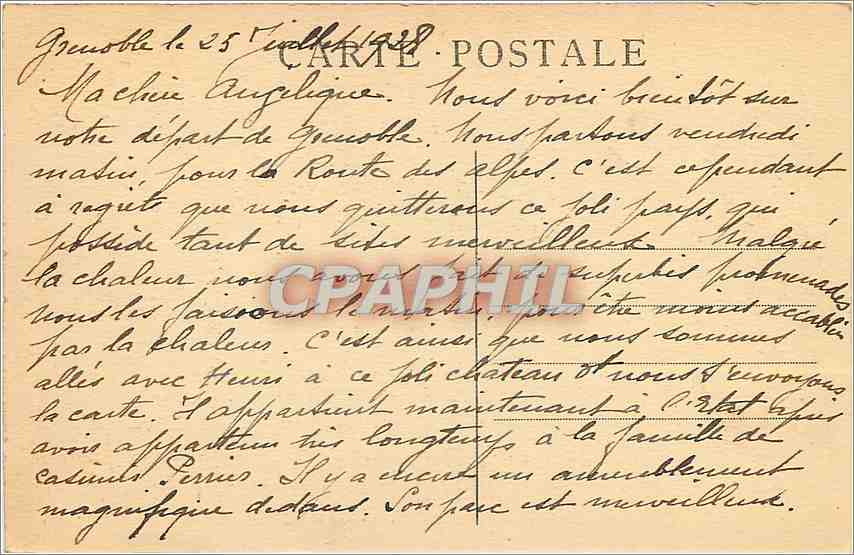 Grenoble le 25 Juillet 1928.
CARTE POSTALE
Ma chère Angélique. Nous voici bientôt sur
notre départ de Grenoble. Nous partons vendredi
matin, pour la Route des alpes. C'est cependant
à regrets que nous quitterons ce joli pays, qui
possède tant de sites merveilleux. Malgré
la chaleur nous avons fait de superbes promenades
nous les faisons le matin, pour être moins accablés
par la chaleur. C'est ainsi que nous sommes
allés avec Henri à ce joli chateau dt nous t'envoyons
la carte. Il appartient maintenant à l'Etat après
avoir appartenu très longtemps à la famille de
casimir Perrier. Il y a encore un ameublement
magnifique dedans. Son parc est merveilleux.
CPAPHIL